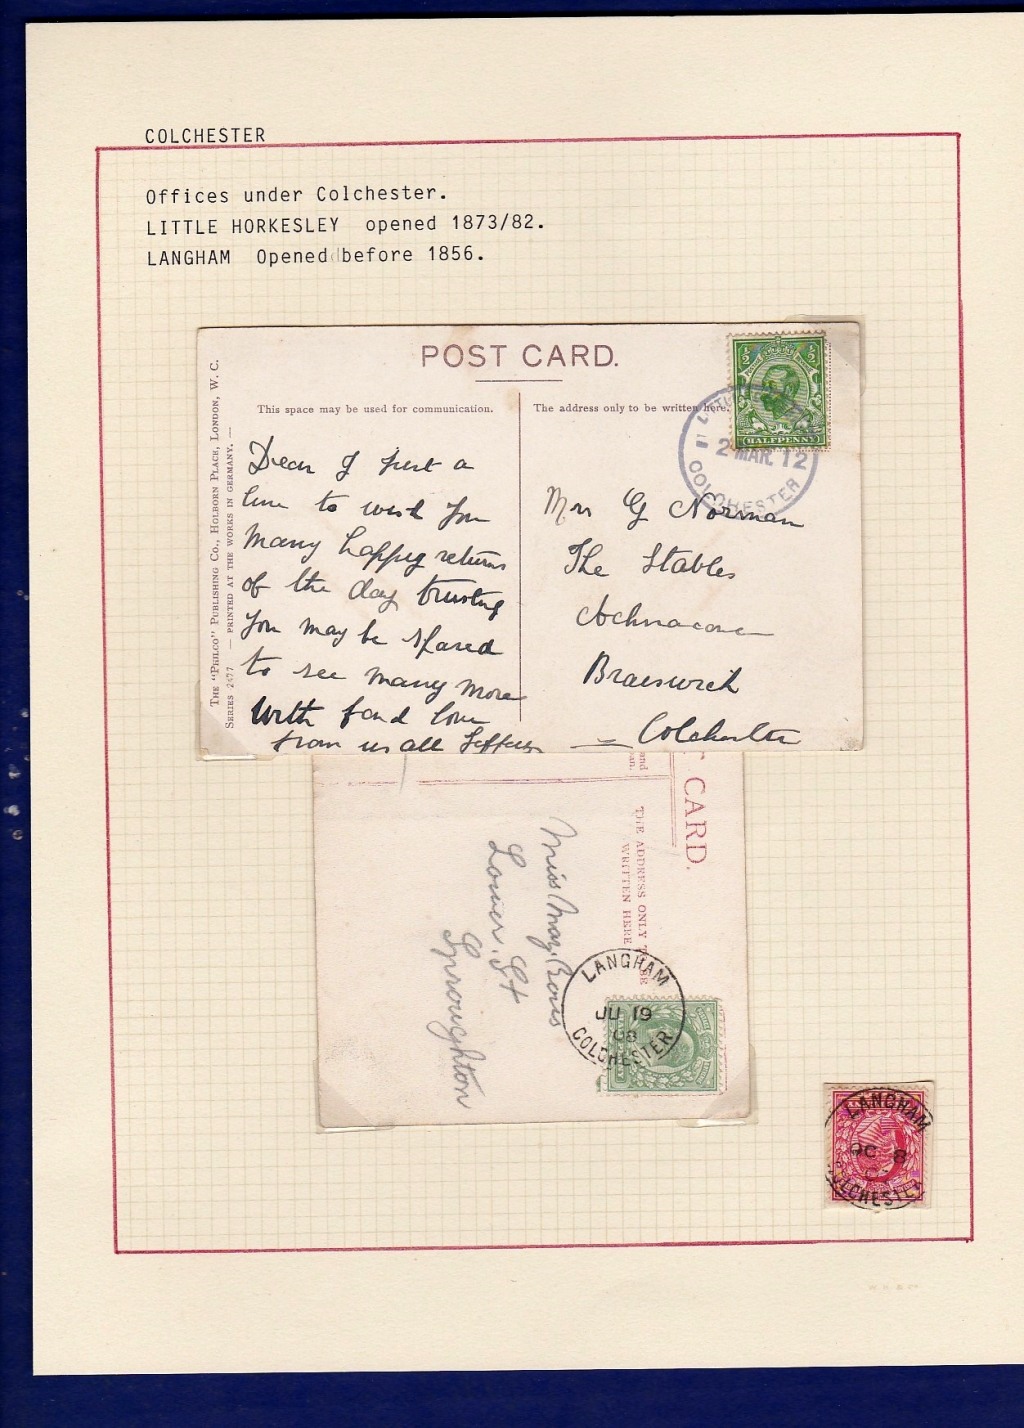 COLCHESTER
Offices under Colchester.
LITTLE HORKESLEY opened 1873/82.
LANGHAM Opened before 1856.
POST CARD.
This space may be used for communication.
The address only to be written here.
THE "PHILCO" PUBLISHING CO., HOLBORN PLACE, LONDON, W. C.
SERIES 2477 — PRINTED AT THE WORKS IN GERMANY. —
½ ½
HALFPENNY
2 MAR. 12
COLCHESTER
Dear G just a
line to wish you
Many happy returns
of the day trusting
you may be spared
to see many more
With fond love
from us all
Mrs G Norman
The Stables
Braiswick
Colchester
CARD.
THE ADDRESS ONLY
WRITTEN HERE
Miss May
Lower St
Sproughton
LANGHAM
JU 19
08
COLCHESTER
LANGHAM
OC 8
COLCHESTER